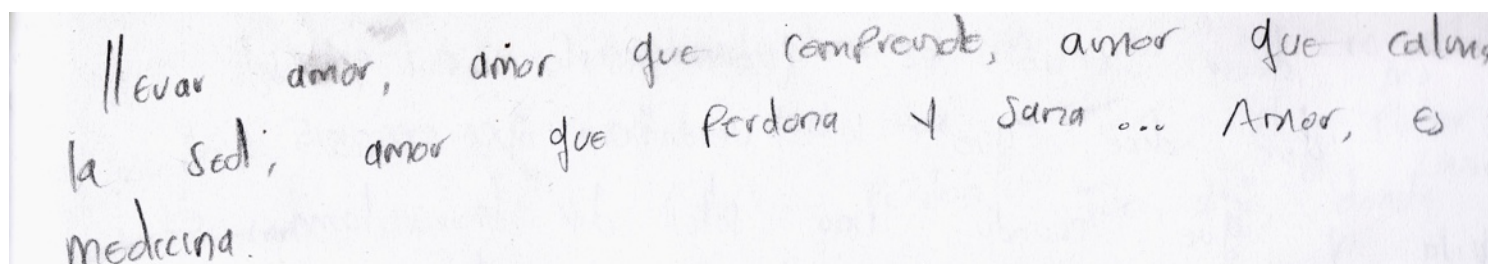 llevar amor, amor que comprende, amor que calma
la sed, amor que perdona y sana... Amor, es
medicina.